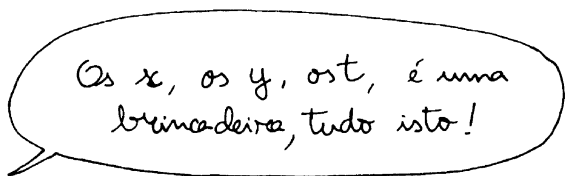 Os x, os y, os t, é uma
brincadeira, tudo isto!